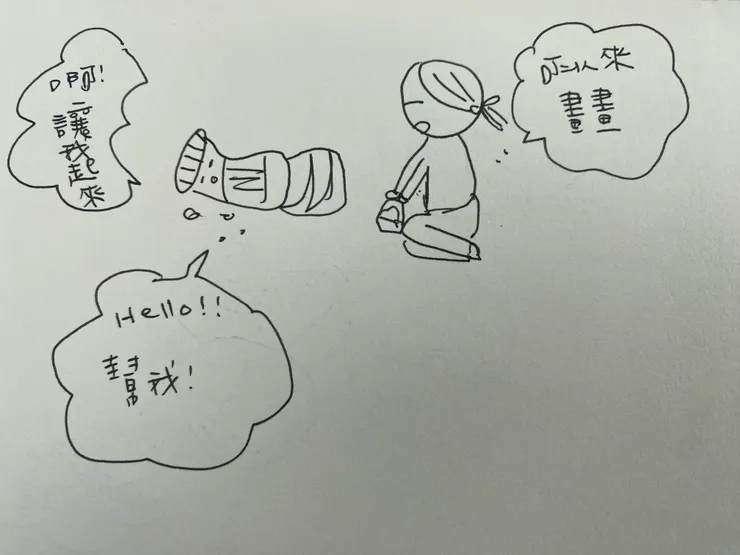 啊!
讓我起來
可以來
畫畫
Hello!!
幫我!